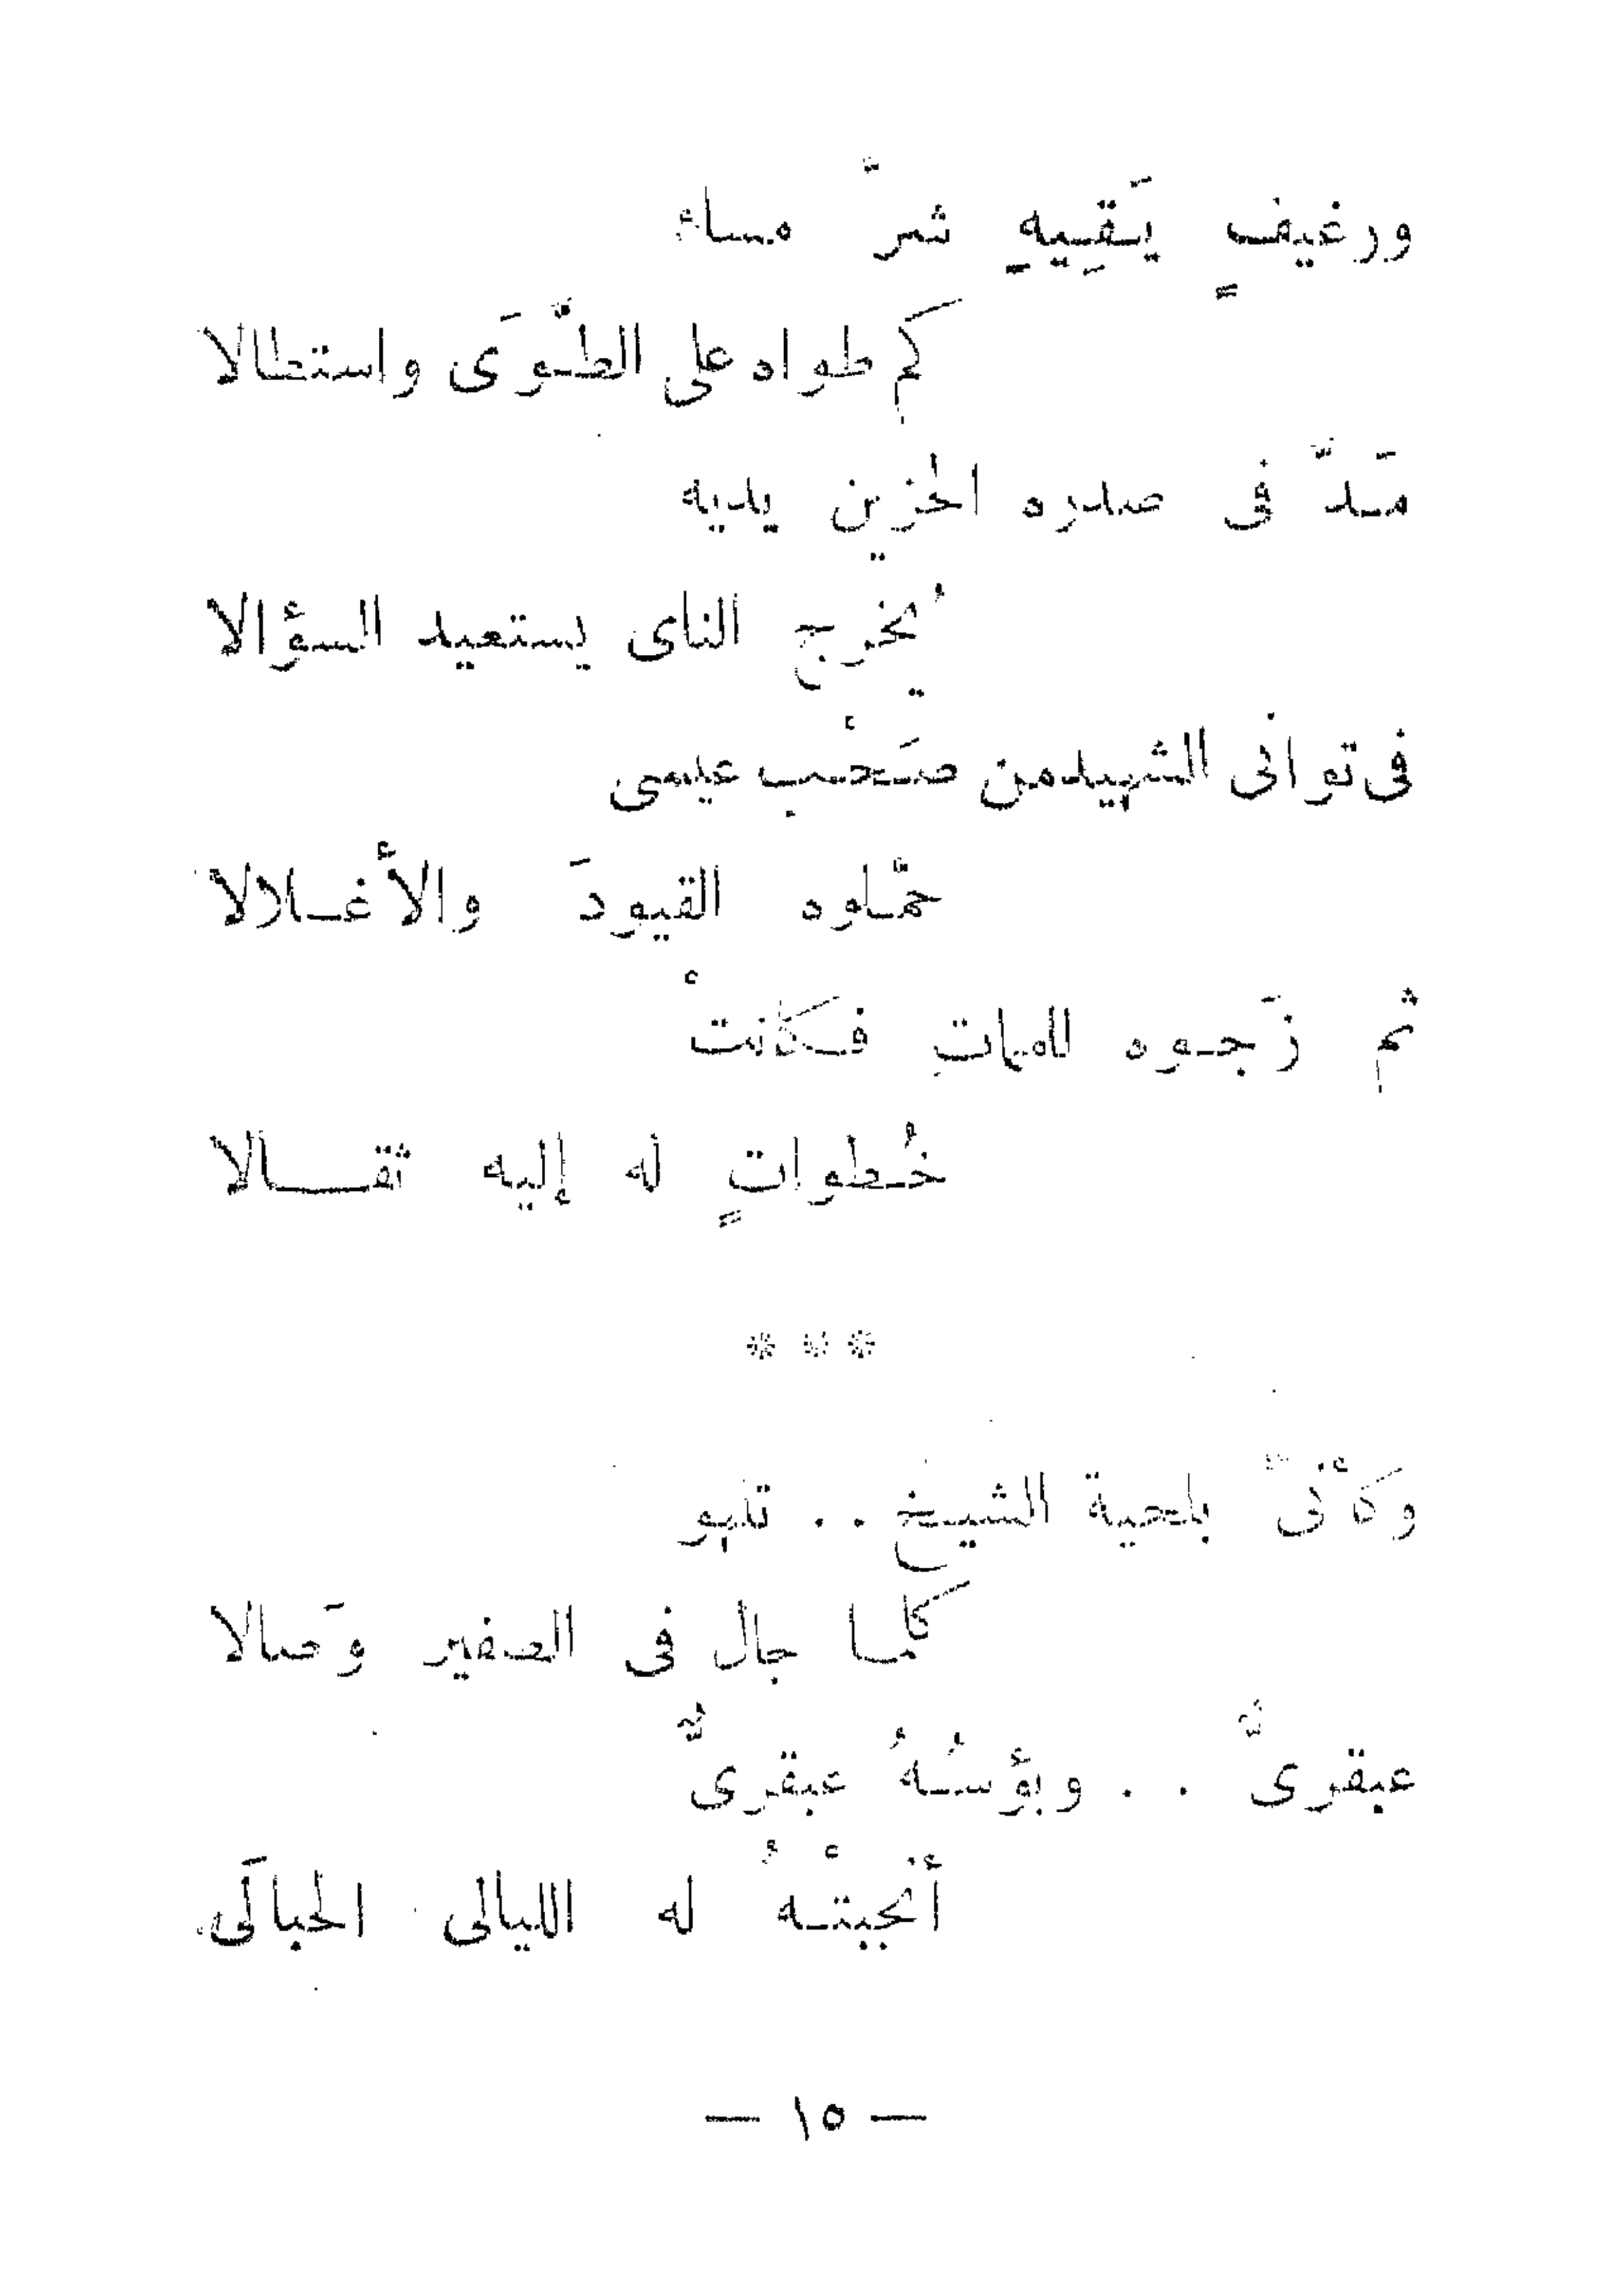 ورغيفٍ يَقِيهِ شرّ مساء
كم طواه على الطّوَى واستطالا
مَدّ فى صدره الحزين يديه
يُخرج الناى يستعيد السؤالا
فى توانى الشهيد من صَحْب عيسى
حمّلوه القيودَ والأغلالا
ثم زَجوه للماتِ فكانتْ
خُطواتٍ له إليه ثقالا
* * *
وكأنىّ بلحية الشيخ . . تلهو
كلما جال فى الصفير وَصالا
عبقرىٌّ . . وبؤسُهُ عبقرىٌّ
أنجبتْهُ له الليالى الحبالَى
— ١٥ —